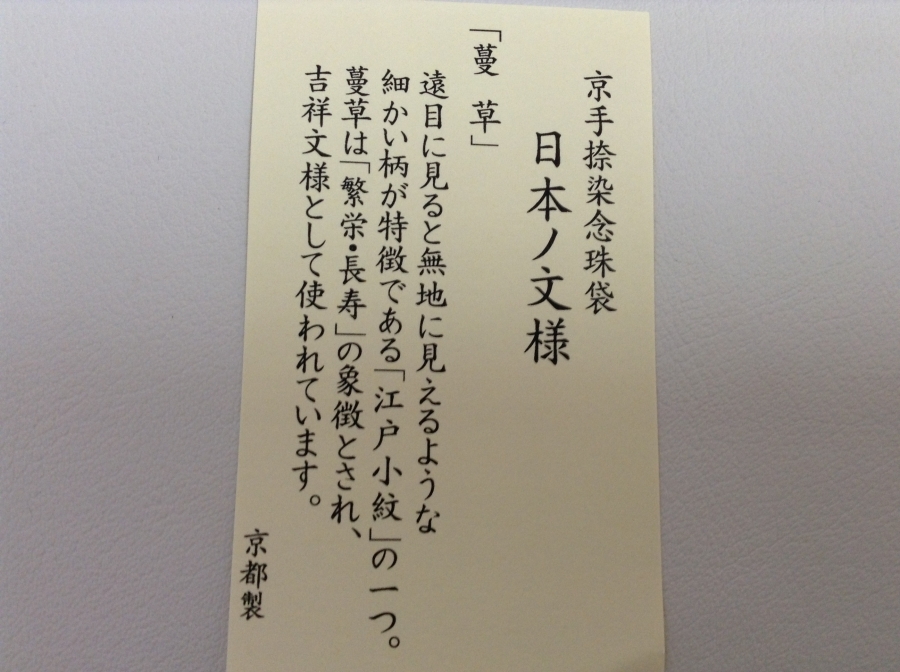 京手捺染念珠袋
日本ノ文様
「蔓草」
遠目に見ると無地に見えるような
細かい柄が特徴である「江戸小紋」の一つ。
蔓草は「繁栄・長寿」の象徴とされ、
吉祥文様として使われています。
京都製